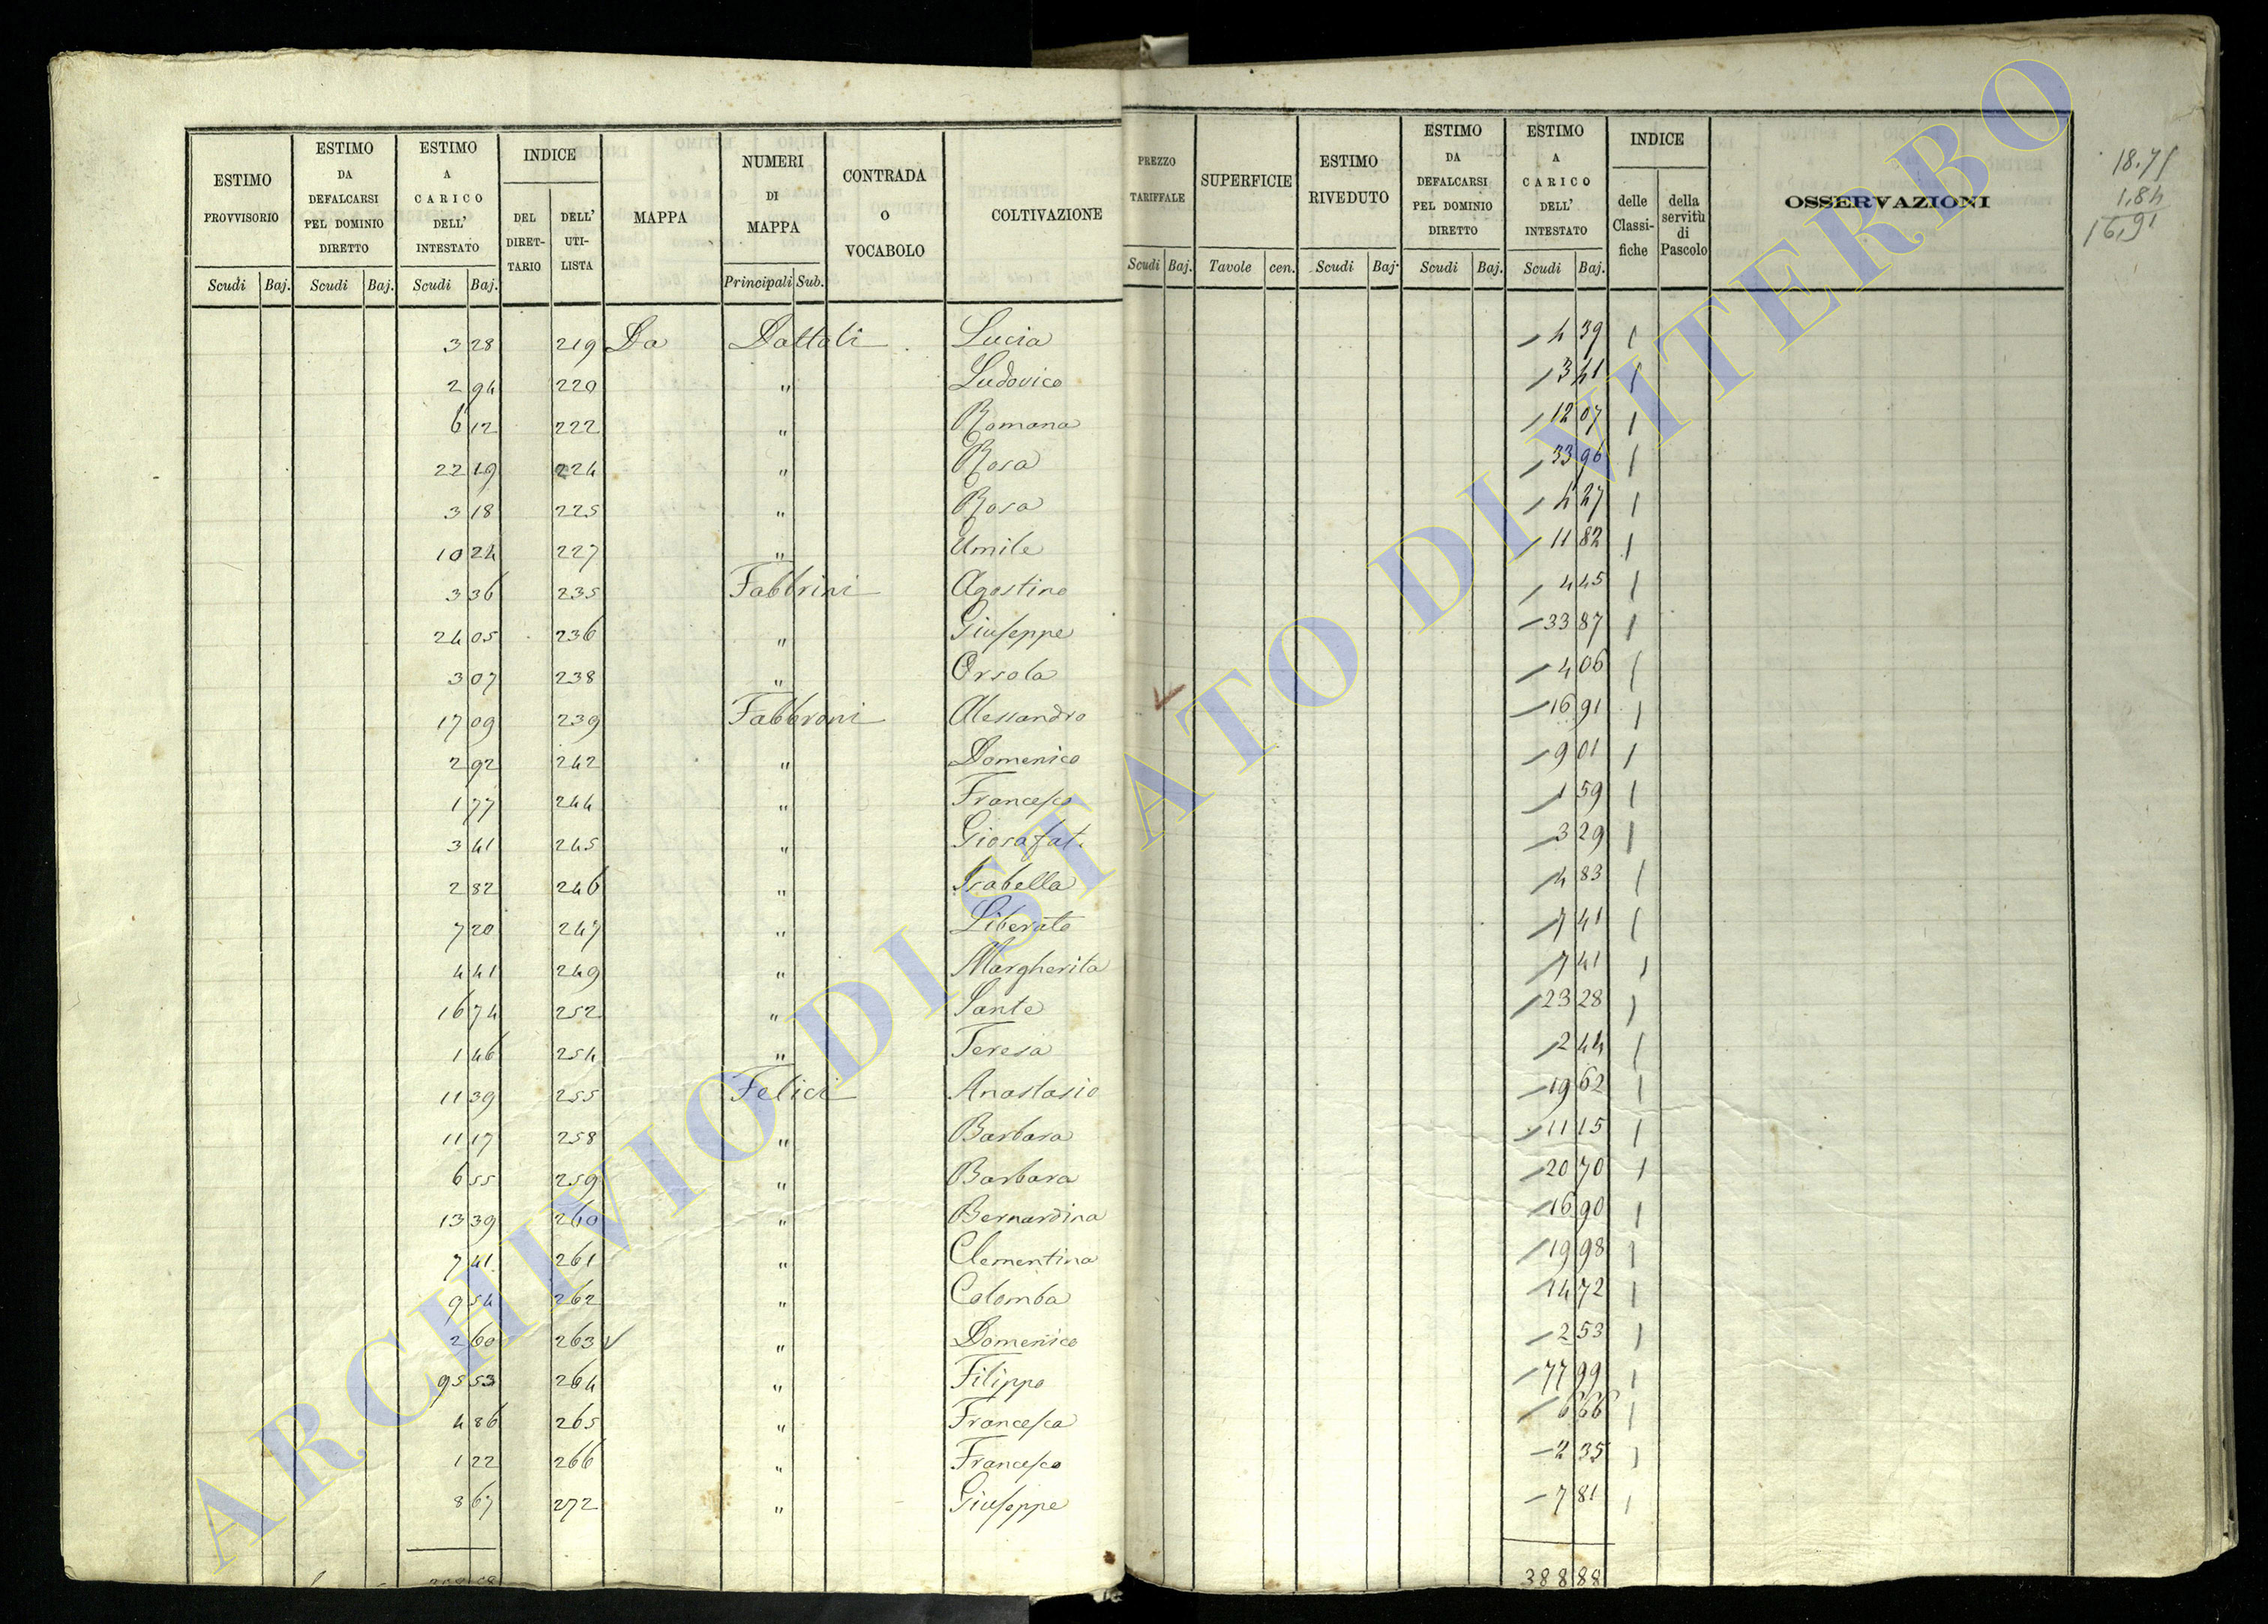 ESTIMO PROVVISORIO
ESTIMO DA DEFALCARSI PEL DOMINIO DIRETTO
ESTIMO A CARICO DELL' INTESTATO
INDICE
DEL DIRET- TARIO
DELL' UTI- LISTA
MAPPA
NUMERI DI MAPPA
CONTRADA O VOCABOLO
COLTIVAZIONE
PREZZO TARIFFALE
SUPERFICIE
ESTIMO RIVEDUTO
ESTIMO DA DEFALCARSI PEL DOMINIO DIRETTO
ESTIMO A CARICO DELL' INTESTATO
INDICE
delle Classi- fiche
della servitù di Pascolo
OSSERVAZIONI
18.71
1.84
16,91
Scudi Baj. Scudi Baj. Scudi Baj. Principali Sub. Scudi Baj. Tavole cen. Scudi Baj. Scudi Baj. Scudi Baj.
3 28 219 Da Dottoli Lucia 4 39
2 94 220 " Ludovico 3 41
6 12 222 " Romana 12 07
22 19 224 " Rosa 33 96
3 18 225 " Rosa 4 27
10 24 227 " Umile 11 82
3 36 235 Fabbrini Agostino 4 45
24 05 236 " Giuseppe 33 87
3 07 238 " Orsola 4 06
17 09 239 Fabbroni Alessandro 16 91
2 92 242 " Domenico 9 01
1 77 244 " Francesco 1 59
3 41 245 " Giosafat. 3 29
2 82 246 " Isabella 4 83
7 20 247 " Liberato 7 41
4 41 249 " Margherita 7 41
16 74 252 " Sante 23 28
1 46 254 " Teresa 2 44
11 39 255 Felici Anastasio 19 62
11 17 258 " Barbara 11 15
6 55 259 " Barbara 20 70
13 39 260 " Bernardina 16 90
7 41 261 " Clementina 19 98
9 54 262 " Colomba 14 72
2 60 263 " Domenico 2 53
95 53 264 " Filippo 77 99
4 86 265 " Francesca 6 66
1 22 266 " Francesco 2 35
8 67 272 " Giuseppe 7 81
388 88
ARCHIVIO DI STATO DI VITERBO